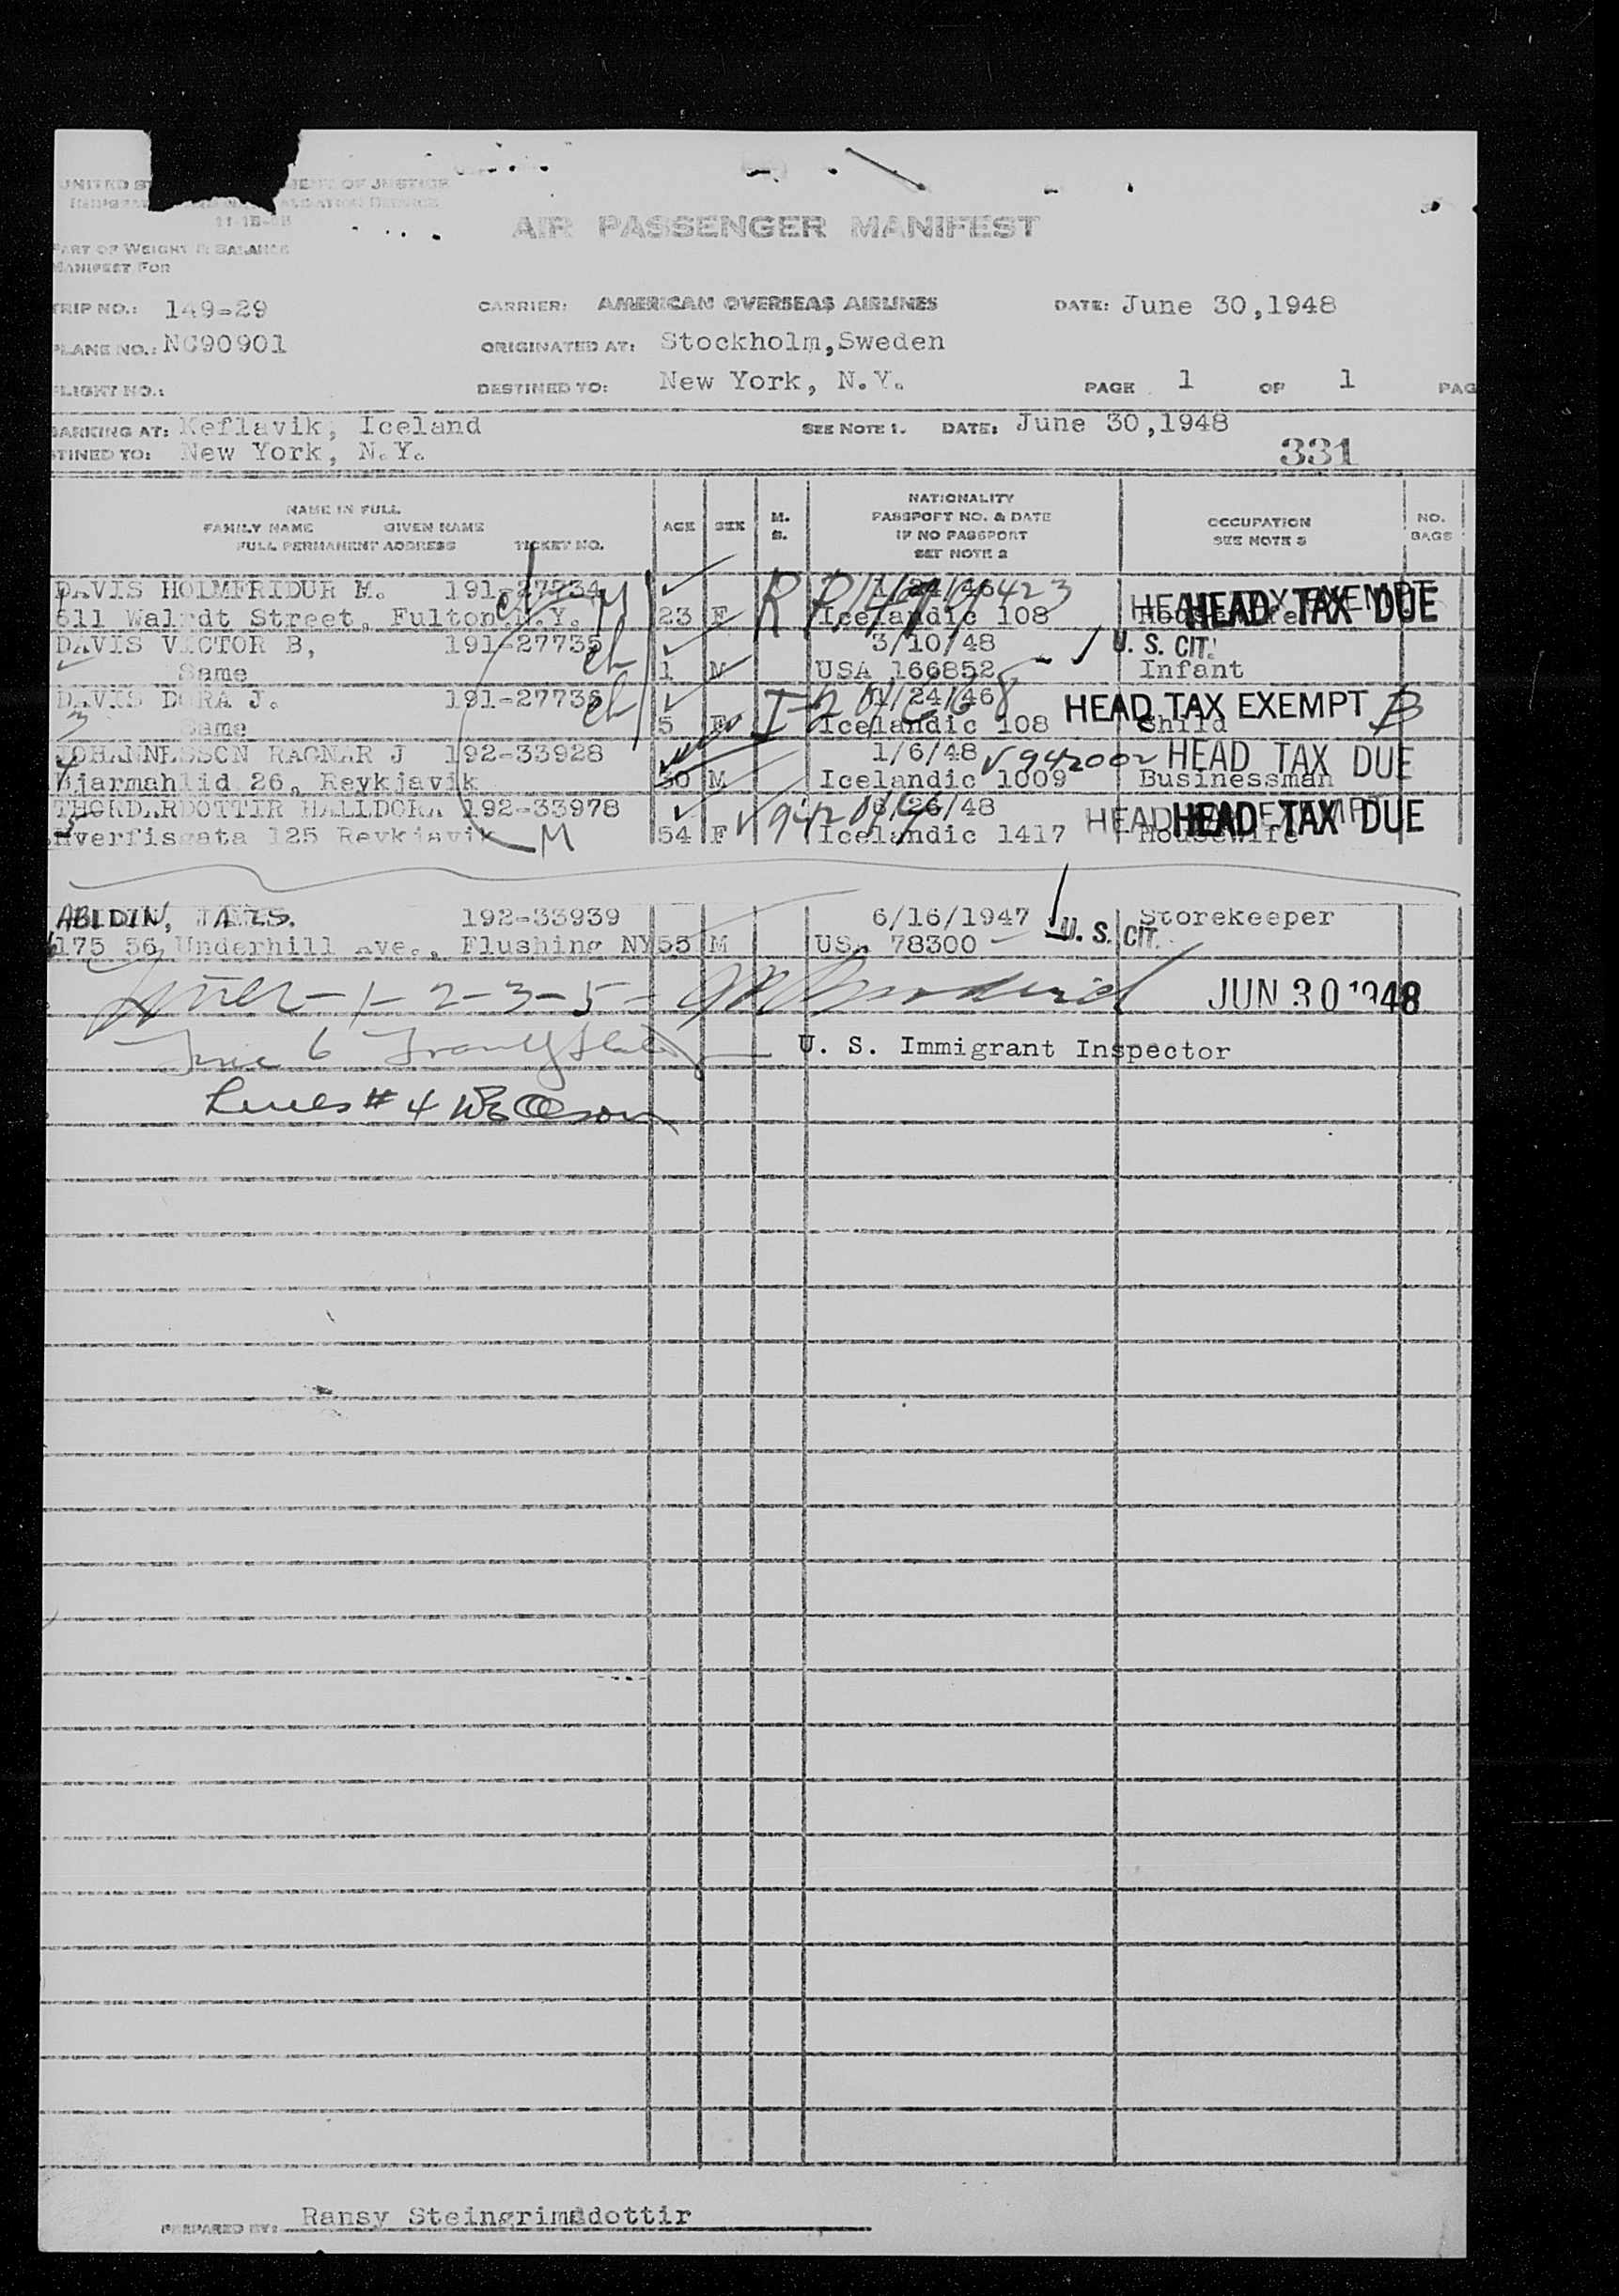 UNITED ST MENT OF JUSTICE
11-1B-4B
AIR PASSENGER MANIFEST
PART OF WEIGHT & BALANCE
MANIFEST FOR
TRIP NO.: 149-29 CARRIER: AMERICAN OVERSEAS AIRLINES DATE: June 30,1948
PLANE NO.: NC90901 ORIGINATED AT: Stockholm,Sweden
FLIGHT NO.: DESTINED TO: New York, N.Y. PAGE 1 OF 1 PAG
BARKING AT: Keflavik, Iceland SEE NOTE 1. DATE: June 30,1948
STINED TO: New York, N.Y. 331
NAME IN FULL
FAMILY NAME GIVEN NAME
FULL PERMANENT ADDRESS TICKET NO.
AGE SEX M. S.
NATIONALITY
PASSPORT NO. & DATE
IF NO PASSPORT
SET NOTE 2
OCCUPATION
SEE NOTE 3
NO. BAGS
DAVIS HOLMFRIDUR M. 191-27734 1/24/46
611 Walrdt Street, Fulton N.Y. 23 F Icelandic 108 HEAD TAX DUE
DAVIS VICTOR B, 191-27735 3/10/48 U. S. CIT.
Same 1 M USA 166852 Infant
DAVIS DORA J. 191-27736 1/24/46 HEAD TAX EXEMPT
3 Same 5 F Icelandic 108 Child
JOHANNESSON RAGNAR J 192-33928 1/6/48 942002 HEAD TAX DUE
Bjarmahlid 26, Reykjavik 30 M Icelandic 1009 Businessman
THORDARDOTTIR HALLDORA 192-33978 6/26/48 HEAD TAX DUE
Hverfisgata 125 Reykjavik M 54 F Icelandic 1417 Housewife
ABIDIN, 192-33939 6/16/1947 U. S. CIT. Storekeeper
175 56 Underhill Ave., Flushing NY 55 M US. 78300
1-2-3-5- JUN 30 1948
6 U. S. Immigrant Inspector
Lines # 4
PREPARED BY: Ransy Steingrimsdottir